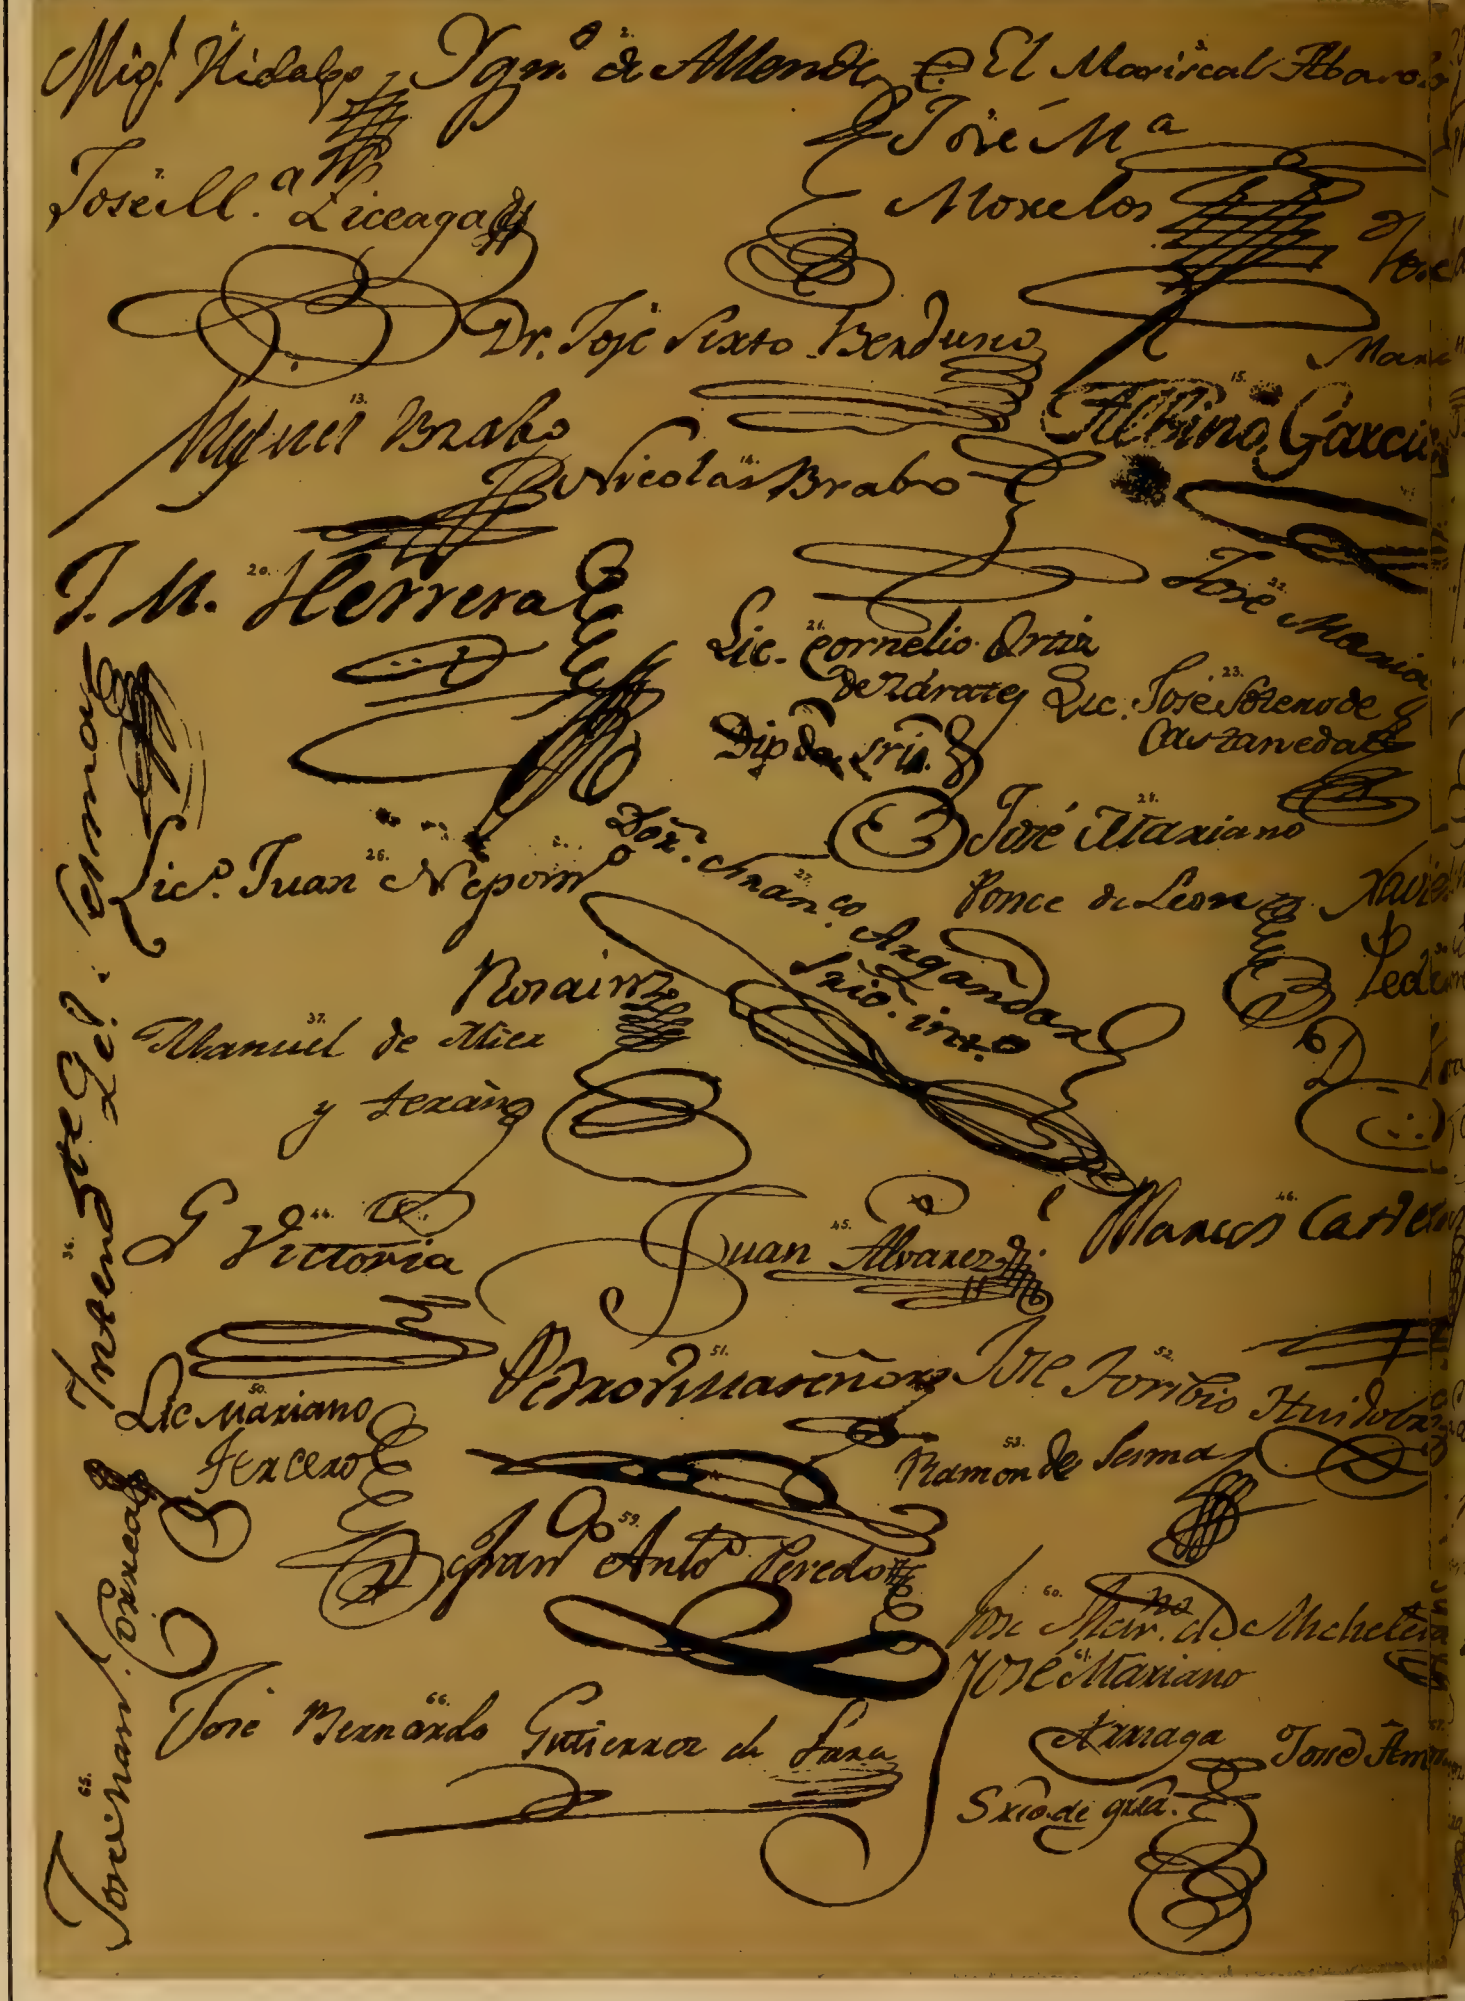 Migl. Hidalgo
2. Ygn.º de Allende
El Mariscal Abasolo
José Mª
Morelos
7. José M.ª Liceaga
José
Dr. José Sixto Berduzco
Mari
13. Miguel Brabo
14. Nicolás Brabo
15. Albino Garcia
20. J. M. Herrera
21. Lic. Cornelio Ortiz
de Zárate
Dip.do Srio.
22. José Maria
23. Lic. José Sotero de
Castañeda
José Mariano
Ponce de Leon
26. Lic.do Juan Nepom.º
Rosains
27. Dor. Fran.co Argandar
Srio. int.º
Xavie
Ped
36. Intend.te Gel.
37. Manuel de Mier
y Terán
44. G Victoria
45. Juan Alvarez
46. Marcos Caste
50. Lic Mariano
Tercero
51. Pedro Villaseñor
52. José Toribio Huidobro
53. Ramon de Sesma
59. Fran.co Ant.º Peredo
60. José Mar.no de Anchieta
61. José Mariano
Arriaga
Srio. de gra.
65. José Man.l Correa
66. José Bernardo Gutierrez de Lara
67. José Am